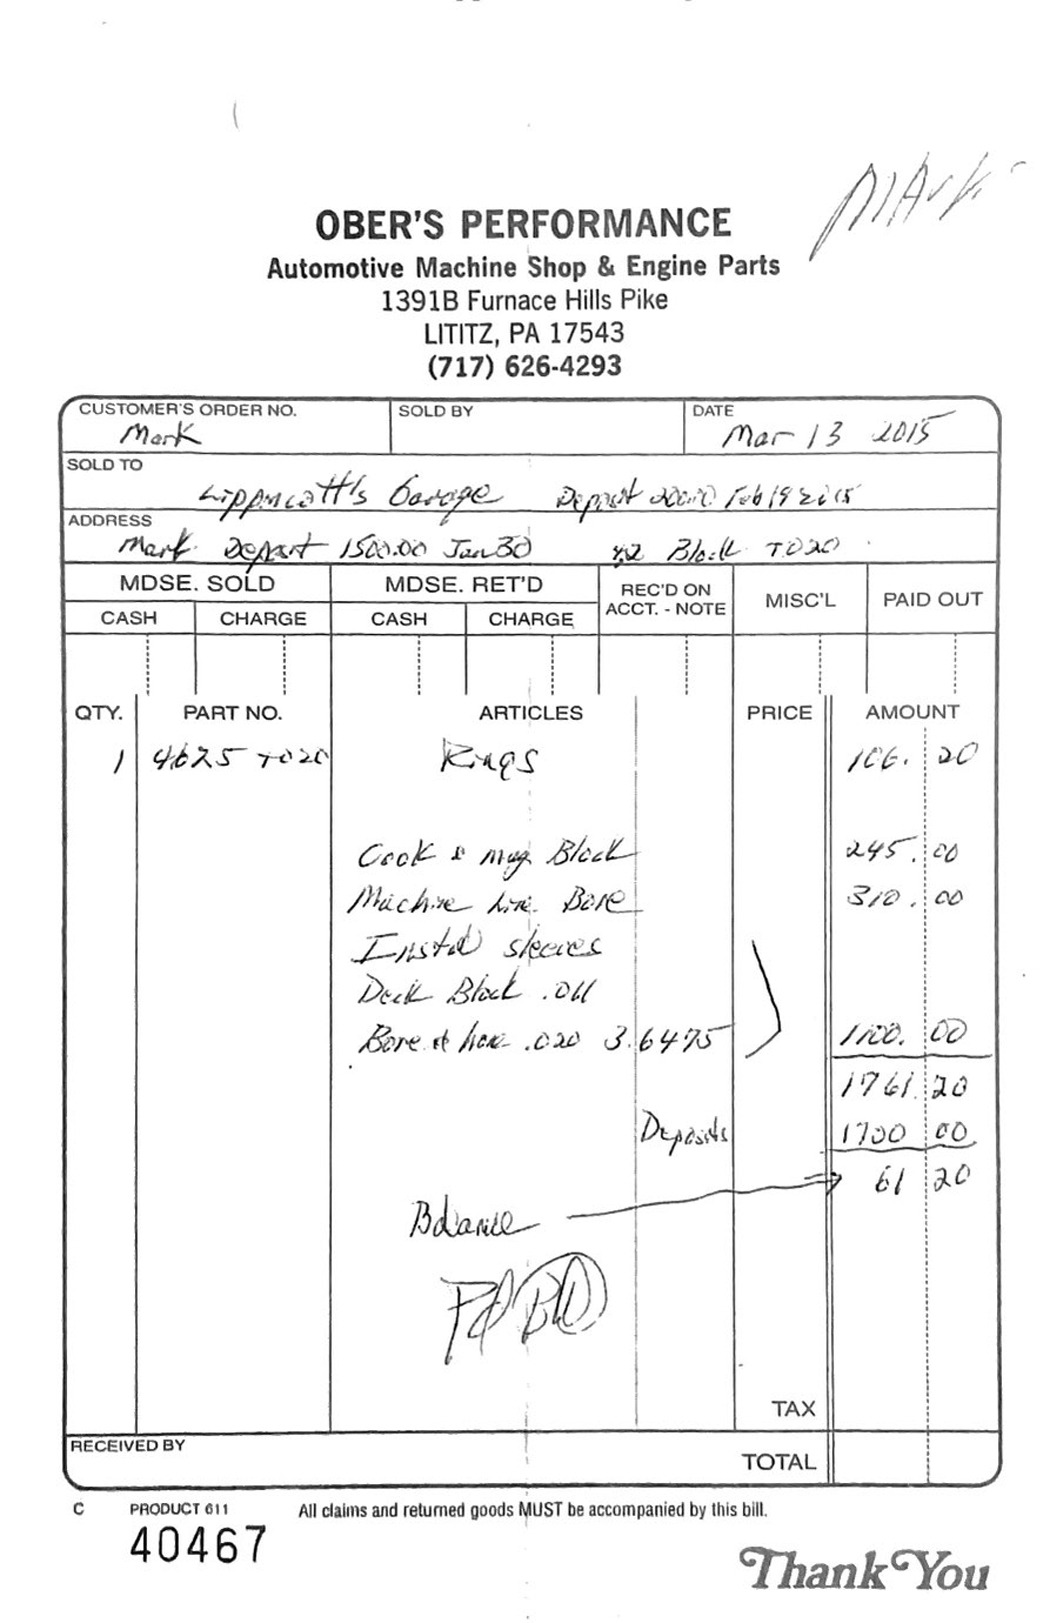 Mark
OBER'S PERFORMANCE
Automotive Machine Shop & Engine Parts
1391B Furnace Hills Pike
LITITZ, PA 17543
(717) 626-4293
CUSTOMER'S ORDER NO. SOLD BY DATE
Mark Mar 13 2015
SOLD TO
Lippincott's Garage Deposit 200.00 Feb 19 2015
ADDRESS
Mark Deposit 1500.00 Jan 30 Block TO20
MDSE. SOLD MDSE. RET'D REC'D ON ACCT. - NOTE MISC'L PAID OUT
CASH CHARGE CASH CHARGE
QTY. PART NO. ARTICLES PRICE AMOUNT
1 4625 TO20 Rings 106.20
Cook & mag Block 245.00
Machine Line Bore 310.00
Install sleeves
Deck Block .011
Bore & hone .020 3.6475 1100.00
1761.20
Deposits 1700 00
61 20
Balance
Pd
TAX
RECEIVED BY
TOTAL
C PRODUCT 611 All claims and returned goods MUST be accompanied by this bill.
40467
Thank You